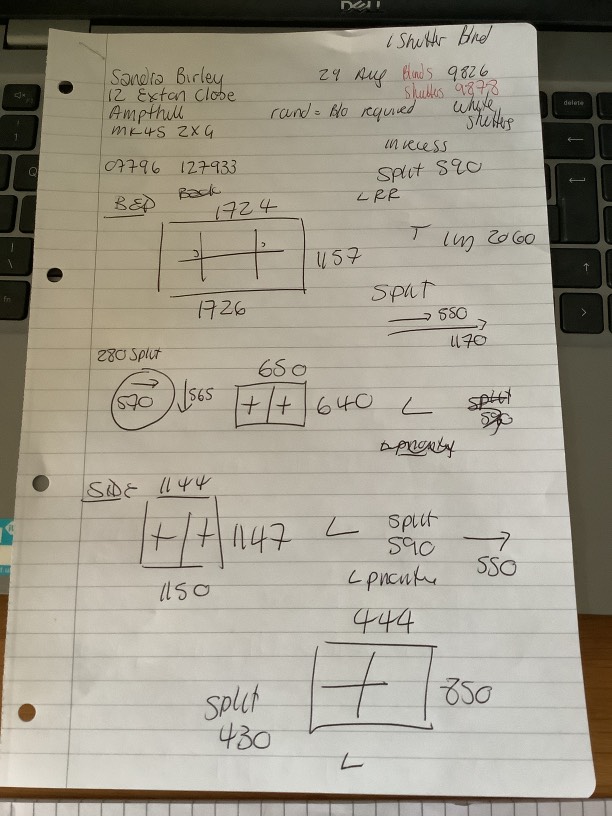 1 Shutter Blind
Sandra Birley 29 Aug Blinds 9826
12 Exton Close Shutters 9878
Ampthill rcand = No required white
MK45 2XG shutters
in recess
07796 127933 split 590
BED Back LRR
1724
T 1m 2060
1157
split
1726
550
1170
280 split
650
590 565
640 L split
590
SIDE 1144
1147 L split
590
550
1150
444
850
split
430
L
DELL
delete